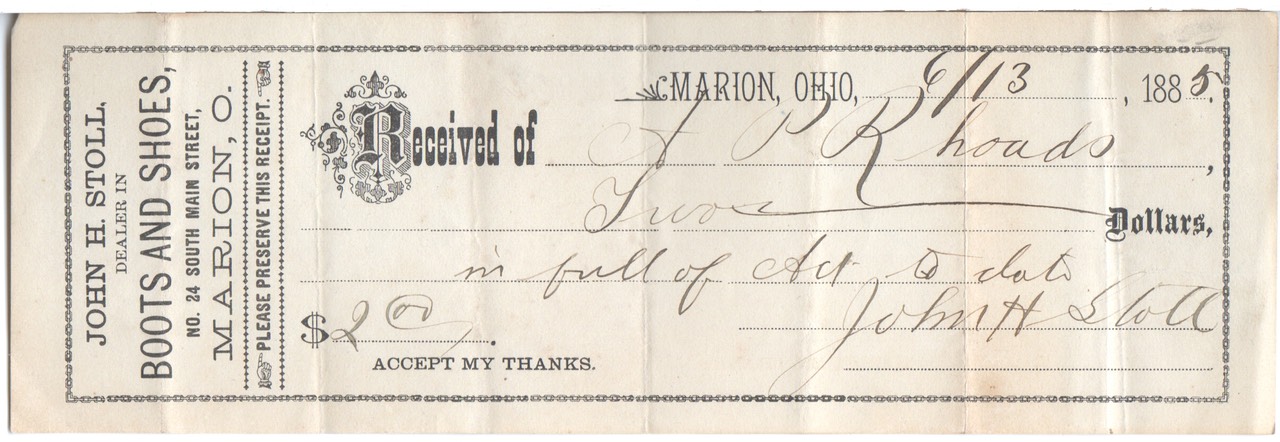 JOHN H. STOLL,
DEALER IN
BOOTS AND SHOES,
NO. 24 SOUTH MAIN STREET,
MARION, O.
PLEASE PRESERVE THIS RECEIPT.
MARION, OHIO, 6/13, 1885.
Received of A P Rhoads,
Two Dollars,
in full of Act to date
$2 00. John H Stoll
ACCEPT MY THANKS.